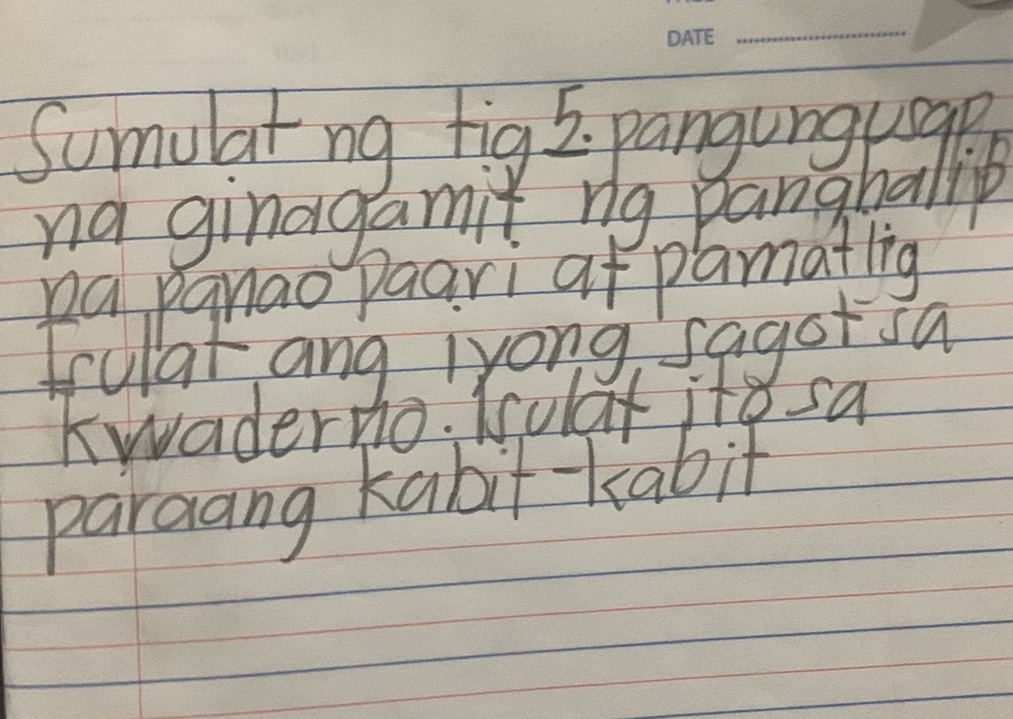 DATE
Sumulat ng tig 5. pangungusap
na ginagamit ng panghalip
na panao paari at pamatlig
Isulat ang iyong sagot sa
kwaderno. Isulat ito sa
paraang kabit-kabit